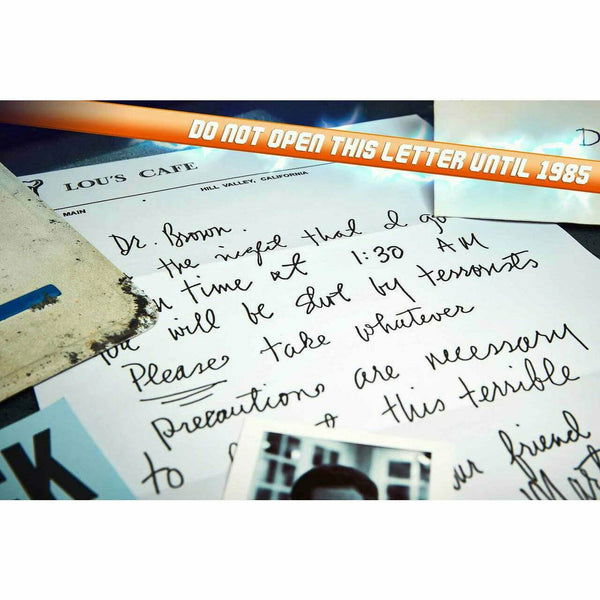 DO NOT OPEN THIS LETTER UNTIL 1985
D
LOU'S CAFE
HILL VALLEY, CALIFORNIA
MAIN
Dr. Brown.
the night that I go
time at 1:30 AM
You will be shot by terrorists
Please take whatever
precautions are necessary
to this terrible
friend
Mart
K